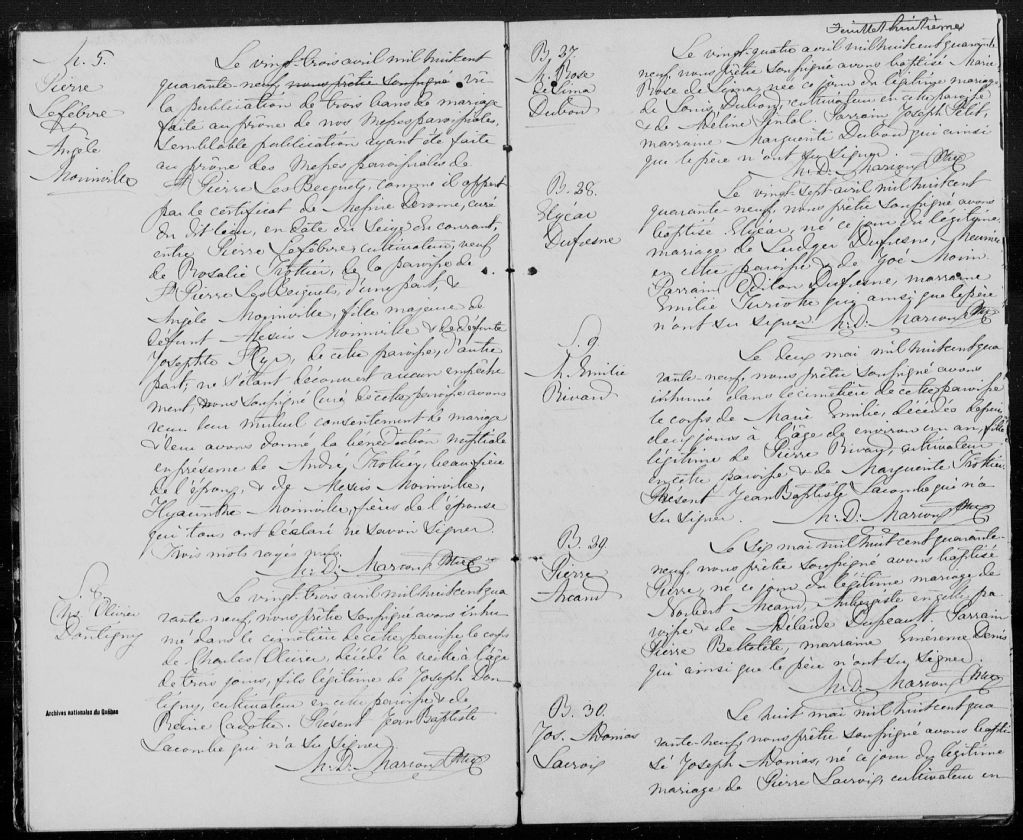 M. 5.
Pierre
Lefebvre
&
Angèle
Mainville
Le vingt-trois avril mil huit cent
quarante-neuf, nous prêtre soussigné vû
la publication de trois bans de mariage
faite au prône de nos Messes paroissiales,
Semblable publication ayant été faite
au prône des Messes paroissiales de
St Pierre Les Becquets, comme il appert
par le certificat de Messire Derome, curé
du dit lieu, en date du Seize du courant,
entre Pierre Lefebvre cultivateur, veuf
de Rosalie Trottier, de la paroisse de
St Pierre Les Becquets, d'une part &
Angèle Mainville, fille majeure de
défunt Alexis Mainville & de défunte
Josephte St Cyr, de cette paroisse, d'autre
part; ne s'étant découvert aucun empêche
ment, nous soussigné Curé de cette paroisse avons
reçu leur mutuel consentement de mariage
& leur avons donné la bénédiction nuptiale
en présence de André Trottier, beau-frère
de l'époux, & de Alexis Mainville,
Hyacinthe Mainville, frères de l'épouse
qui tous ont déclaré ne savoir signer.
Trois mots rayés nuls.
M. D. Marcoux Ptre
S. 8.
Chs. Olivier
Dontigny
Le vingt-trois avril mil huit cent qua
rante-neuf, nous prêtre soussigné avons inhu
mé dans le cimetière de cette paroisse le corps
de Charles Olivier, décédé la veille à l'âge
de trois jours, fils légitime de Joseph Don
tigny, cultivateur en cette paroisse & de
Reine Cadotte. Présent Jean Baptiste
Lacombe qui n'a su signer
M. D. Marcoux Ptre
Archives nationales du Québec
Feuillet huitième
B. 27.
M. Rose
de Lima
Dubord
Le vingt-quatre avril mil huit cent quarante
neuf, nous prêtre soussigné avons baptisé Marie
Rose de Lima, née ce jour du légitime mariage
de Louis Dubord, cultivateur en cette paroisse
& de Adéline Gentel. Parrain Joseph Petit,
marraine Marguerite Dubord qui ainsi
que le père n'ont su signer.
M. D. Marcoux Ptre
B. 28.
Elzéar
Dufresne
Le vingt-sept avril mil huit cent
quarante-neuf, nous prêtre soussigné avons
baptisé Elzéar, né ce jour du légitime
mariage de Ludger Dufresne, meunier
en cette paroisse & de Zoé Morin.
Parrain Odilon Dufresne, marraine
Emilie Turcotte qui ainsi que le père
n'ont su signer. M. D. Marcoux Ptre
S. 9
M. Emilie
Rivard
Le deux mai mil huit cent qua
rante-neuf, nous prêtre soussigné avons
inhumé dans le cimetière de cette paroisse
le corps de Marie Emilie, décédée depuis
deux jours à l'âge de environ un an, fille
légitime de Pierre Rivard, cultivateur
en cette paroisse & de Marguerite Trottier.
Présent Jean Baptiste Lacombe qui n'a
su signer. M. D. Marcoux Ptre
B. 29.
Pierre
Arcand
Le six mai mil huit cent quarante-
neuf, nous prêtre soussigné avons baptisé
Pierre, né ce jour du légitime mariage de
Norbert Arcand, Aubergiste en cette pa
roisse & de Adélaïde Dupeaut. Parrain
Pierre Belletête, marraine Emérence Denis
qui ainsi que le père n'ont su signer.
M. D. Marcoux Ptre
B. 30.
Jos. Thomas
Lacroix
Le huit mai mil huit cent qua
rante-neuf, nous prêtre soussigné avons bapti
sé Joseph Thomas, né ce jour du légitime
mariage de Pierre Lacroix, cultivateur en